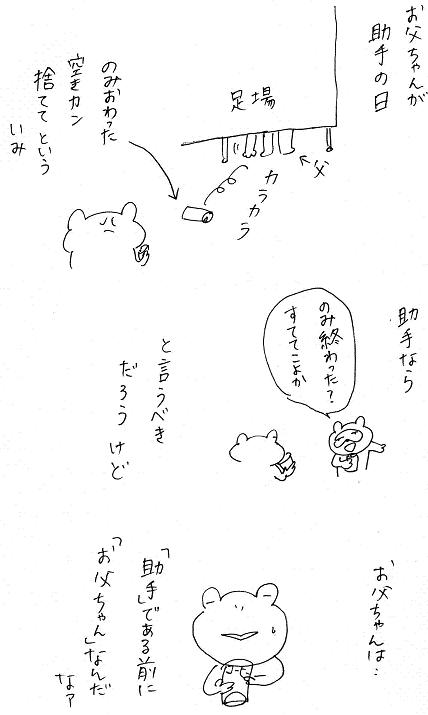 お父ちゃんが
助手の日
足場
父
カラカラ
のみおわった
空きカン
捨ててという
いみ
助手なら
のみ終わった?
すててこよか
と言うべき
だろうけど
お父ちゃんは…
「助手」である前に
「お父ちゃん」なんだ
なァ